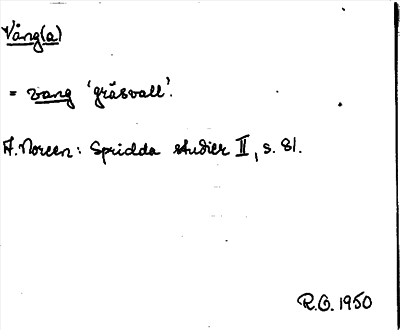 Vång(a)
= vang 'gräsvall'.
A. Noreen: Spridda studier II, s. 81.
R.O. 1950